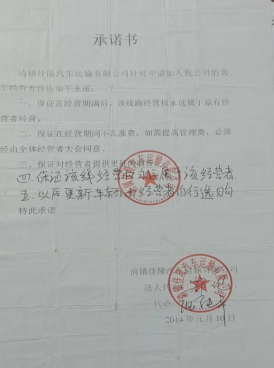 承诺书
清镇佳隆汽车运输有限公司针对申请加入我公司的客
车经营者作出如下承诺:
一、保证在经营期满后,该线路经营权永远属于原有经
营者经营。
二、保证在经营期间不乱涨费,如需提高管理费,必须
经由全体经营者大会同意。
三、保证对经营者提供更好的服务
四.保证该线经营权永远属于该经营者
五.以后更新车辆由经营者自行选购
特此承诺
清镇佳隆汽车运输有限公司
法人代表
代表
2014年元月10日